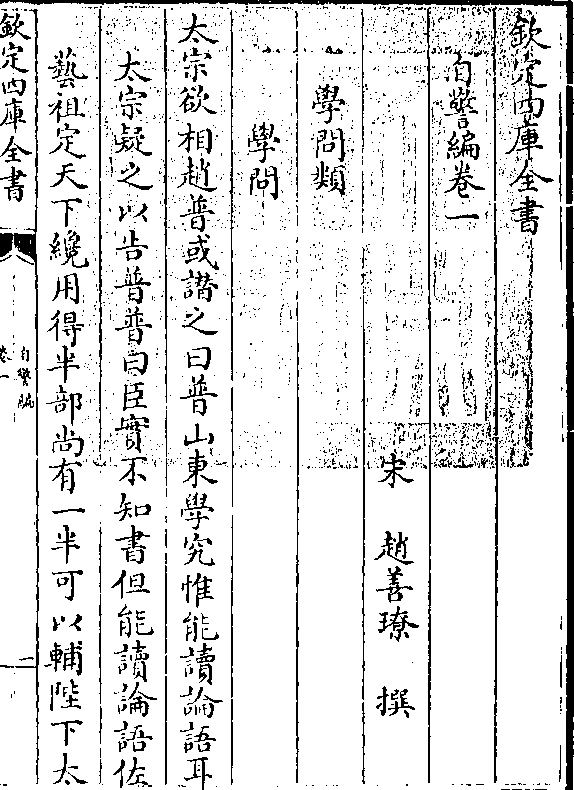 欽定四庫全書
自警編卷一
宋 趙善璙 撰
學問類
學問
太宗欲相趙普或譖之曰普山東學究惟能讀論語耳
太宗疑之以告普普曰臣實不知書但能讀論語佐
藝祖定天下纔用得半部尚有一半可以輔陛下太
欽定四庫全書
自警編
卷一
一